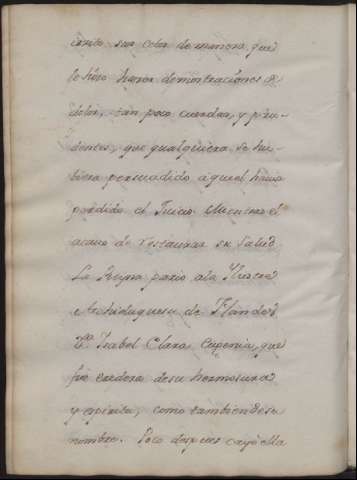 ciruto sun color de manera que
le hiso hazer demostraciones de
dolor, tan poco cuerdas, y pru-
dentes, que qualquiera se hu-
biera persuadido aquel havia
perdido el Juicio Mientras el
acavo de restaurar su Salud
La Reyna pario ala Ylustre
Archiduquesa de Flandes
D.ª Ysabel Clara Eugenia, que
fue eredera desu hermosura
y espiritu, como tambien desu
nombre. Poco despues cayò ella